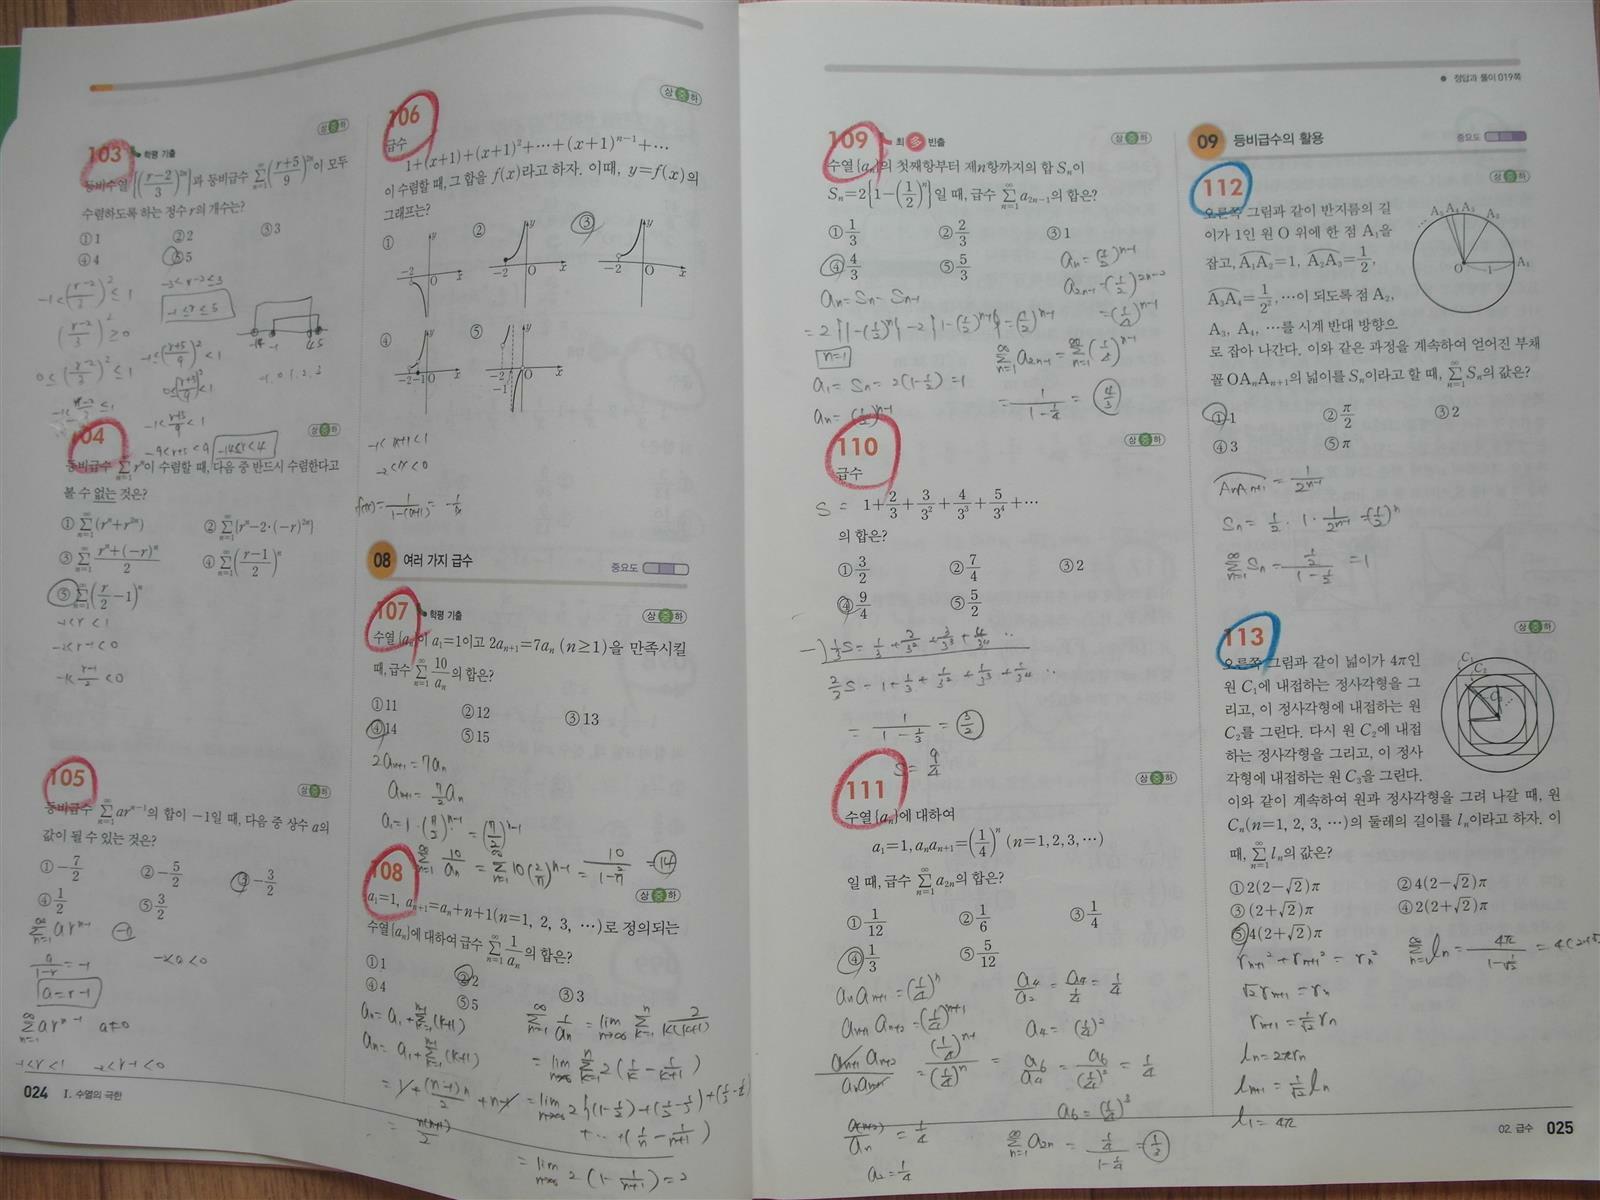 상 중 하
103 학평 기출
등비수열 {((r-2)/3)^{2n}}과 등비급수 ∑_{n=1}^{∞}((r+5)/9)^{2n}이 모두
수렴하도록 하는 정수 r의 개수는?
① 1 ② 2 ③ 3
④ 4 ⑤ 5
-1<(r-2/3)^2≤1
-3<r-2≤3
-1≤r≤5
(r-2/3)^2≥0
0≤(r-2/3)^2≤1
-1≤(r+5/9)^2<1
-1<r+5/9<1
-9<r+5<9
104
상 중 하
등비급수 ∑_{n=1}^{∞} r^n이 수렴할 때, 다음 중 반드시 수렴한다고
볼 수 없는 것은?
① ∑_{n=1}^{∞}(r^n+r^{2n}) ② ∑_{n=1}^{∞}{r^n-2·(-r)^{2n}}
③ ∑_{n=1}^{∞} (r^n+(-r)^n)/2 ④ ∑_{n=1}^{∞}((r-1)/2)^n
⑤ ∑_{n=1}^{∞}(r/2-1)^n
-1<r<1
-2<r-1<0
-1<r-1/2<0
105
상 중 하
등비급수 ∑_{n=1}^{∞} ar^{n-1}의 합이 -1일 때, 다음 중 상수 a의
값이 될 수 있는 것은?
① -7/2 ② -5/2 ③ -3/2
④ 1/2 ⑤ 3/2
∑_{n=1}^{∞} ar^{n-1} -1
a/(1-r)=-1 -2<a<0
a=r-1
∑_{n=1}^{∞} ar^{n-1} a≠0
-1<r<1 -2<r-1<0
024 Ⅰ. 수열의 극한
상 중 하
106
급수
1+(x+1)+(x+1)^2+…+(x+1)^{n-1}+…
이 수렴할 때, 그 합을 f(x)라고 하자. 이때, y=f(x)의
그래프는?
① y -2 O x
② y -2 O x
③ y -2 O x
④ y -2 -1 O x
⑤ y -2 -1 O x
-1<x+1<1
-2<x<0
f(x)=1/(1-(x+1))=-1/x
08 여러 가지 급수 중요도
107 학평 기출 상 중 하
수열 {a_n}이 a_1=1이고 2a_{n+1}=7a_n (n≥1)을 만족시킬
때, 급수 ∑_{n=1}^{∞} 10/a_n의 합은?
① 11 ② 12 ③ 13
④ 14 ⑤ 15
2a_{n+1}=7a_n
a_{n+1}=7/2 a_n
a_n=1·(7/2)^{n-1}=(7/2)^{n-1}
∑_{n=1}^{∞} 10/a_n=∑_{n=1}^{∞} 10(2/7)^{n-1}=10/(1-2/7)=14
108 상 중 하
a_1=1, a_{n+1}=a_n+n+1(n=1, 2, 3, …)로 정의되는
수열 {a_n}에 대하여 급수 ∑_{n=1}^{∞} 1/a_n의 합은?
① 1 ② 2 ③ 3
④ 4 ⑤ 5
a_n=a_1+∑_{k=1}^{n-1}(k+1)
a_n=a_1+∑_{k=1}^{n-1}(k+1)
=1+(n-1)n/2+n-1
=n(n+1)/2
∑_{n=1}^{∞} 1/a_n=lim_{n→∞}∑_{k=1}^{n} 2/k(k+1)
=lim_{n→∞}∑_{k=1}^{n} 2(1/k-1/(k+1))
=lim_{n→∞} 2{(1-1/2)+(1/2-1/3)+(1/3-1/4)
+…+(1/n-1/(n+1))
=lim_{n→∞} 2(1-1/(n+1))=2
정답과 풀이 019쪽
109 최 多 빈출 상 중 하
수열 {a_n}의 첫째항부터 제n항까지의 합 S_n이
S_n=2{1-(1/2)^n}일 때, 급수 ∑_{n=1}^{∞} a_{2n-1}의 합은?
① 1/3 ② 2/3 ③ 1
④ 4/3 ⑤ 5/3
a_n=(1/2)^{n-1}
a_{2n-1}=(1/2)^{2n-2}
=(1/4)^{n-1}
a_n=S_n-S_{n-1}
=2{1-(1/2)^n}-2{1-(1/2)^{n-1}}=(1/2)^{n-1}
n=1
a_1=S_1=2(1-1/2)=1
a_n=(1/2)^{n-1}
∑_{n=1}^{∞} a_{2n-1}=∑_{n=1}^{∞}(1/4)^{n-1}
=1/(1-1/4)=4/3
110 상 중 하
급수
S= 1+2/3+3/3^2+4/3^3+5/3^4+…
의 합은?
① 3/2 ② 7/4 ③ 2
④ 9/4 ⑤ 5/2
-) 1/3 S=1/3+2/3^2+3/3^3+4/3^4…
2/3 S=1+1/3+1/3^2+1/3^3+1/3^4…
=1/(1-1/3)=3/2
S=9/4
111 상 중 하
수열 {a_n}에 대하여
a_1=1, a_na_{n+1}=(1/4)^n (n=1, 2, 3, …)
일 때, 급수 ∑_{n=1}^{∞} a_{2n}의 합은?
① 1/12 ② 1/6 ③ 1/4
④ 1/3 ⑤ 5/12
a_n a_{n+1}=(1/4)^n
a_{n+1} a_{n+2}=(1/4)^{n+1}
a_{n+1}a_{n+2}/a_na_{n+1}=(1/4)^{n+1}/(1/4)^n=
a_{n+2}/a_n=1/4
a_2=1/4
a_4/a_2=a_4/(1/4)=1/4
a_4=(1/4)^2
a_6/a_4=a_6/(1/4)^2=1/4
a_6=(1/4)^3
∑_{n=1}^{∞} a_{2n}=(1/4)/(1-1/4)=1/3
09 등비급수의 활용 중요도
112 상 중 하
오른쪽 그림과 같이 반지름의 길
이가 1인 원 O 위에 한 점 A_1을
잡고, A_1A_2=1, A_2A_3=1/2,
A_3A_4=1/2^2, …이 되도록 점 A_2,
A_3, A_4, …를 시계 반대 방향으
로 잡아 나간다. 이와 같은 과정을 계속하여 얻어진 부채
꼴 OA_nA_{n+1}의 넓이를 S_n이라고 할 때, ∑_{n=1}^{∞} S_n의 값은?
A_5 A_4 A_3 A_2 O 1 A_1
① 1 ② π/2 ③ 2
④ 3 ⑤ π
A_nA_{n+1}=1/2^{n-1}
S_n=1/2·1·1/2^{n-1}=(1/2)^n
∑_{n=1}^{∞} S_n=(1/2)/(1-1/2)=1
113 상 중 하
오른쪽 그림과 같이 넓이가 4π인
원 C_1에 내접하는 정사각형을 그
리고, 이 정사각형에 내접하는 원
C_2를 그린다. 다시 원 C_2에 내접
하는 정사각형을 그리고, 이 정사
각형에 내접하는 원 C_3을 그린다.
이와 같이 계속하여 원과 정사각형을 그려 나갈 때, 원
C_n(n=1, 2, 3, …)의 둘레의 길이를 l_n이라고 하자. 이
때, ∑_{n=1}^{∞} l_n의 값은?
C_1 C_2 C_3
① 2(2-√2)π ② 4(2-√2)π
③ (2+√2)π ④ 2(2+√2)π
⑤ 4(2+√2)π
r_{n+1}^2+r_{n+1}^2=r_n^2
√2 r_{n+1}=r_n
r_{n+1}=1/√2 r_n
l_n=2πr_n
l_{n+1}=1/√2 l_n
l_1=4π
∑_{n=1}^{∞} l_n=4π/(1-1/√2)
02 급수 025